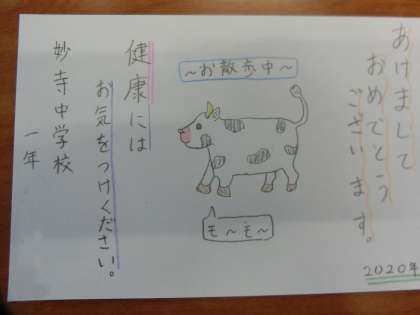 あけまして
おめでとう
ございます。
2020年
~お散歩中~
も~も~
健康には
お気をつけください。
妙寺中学校
一年